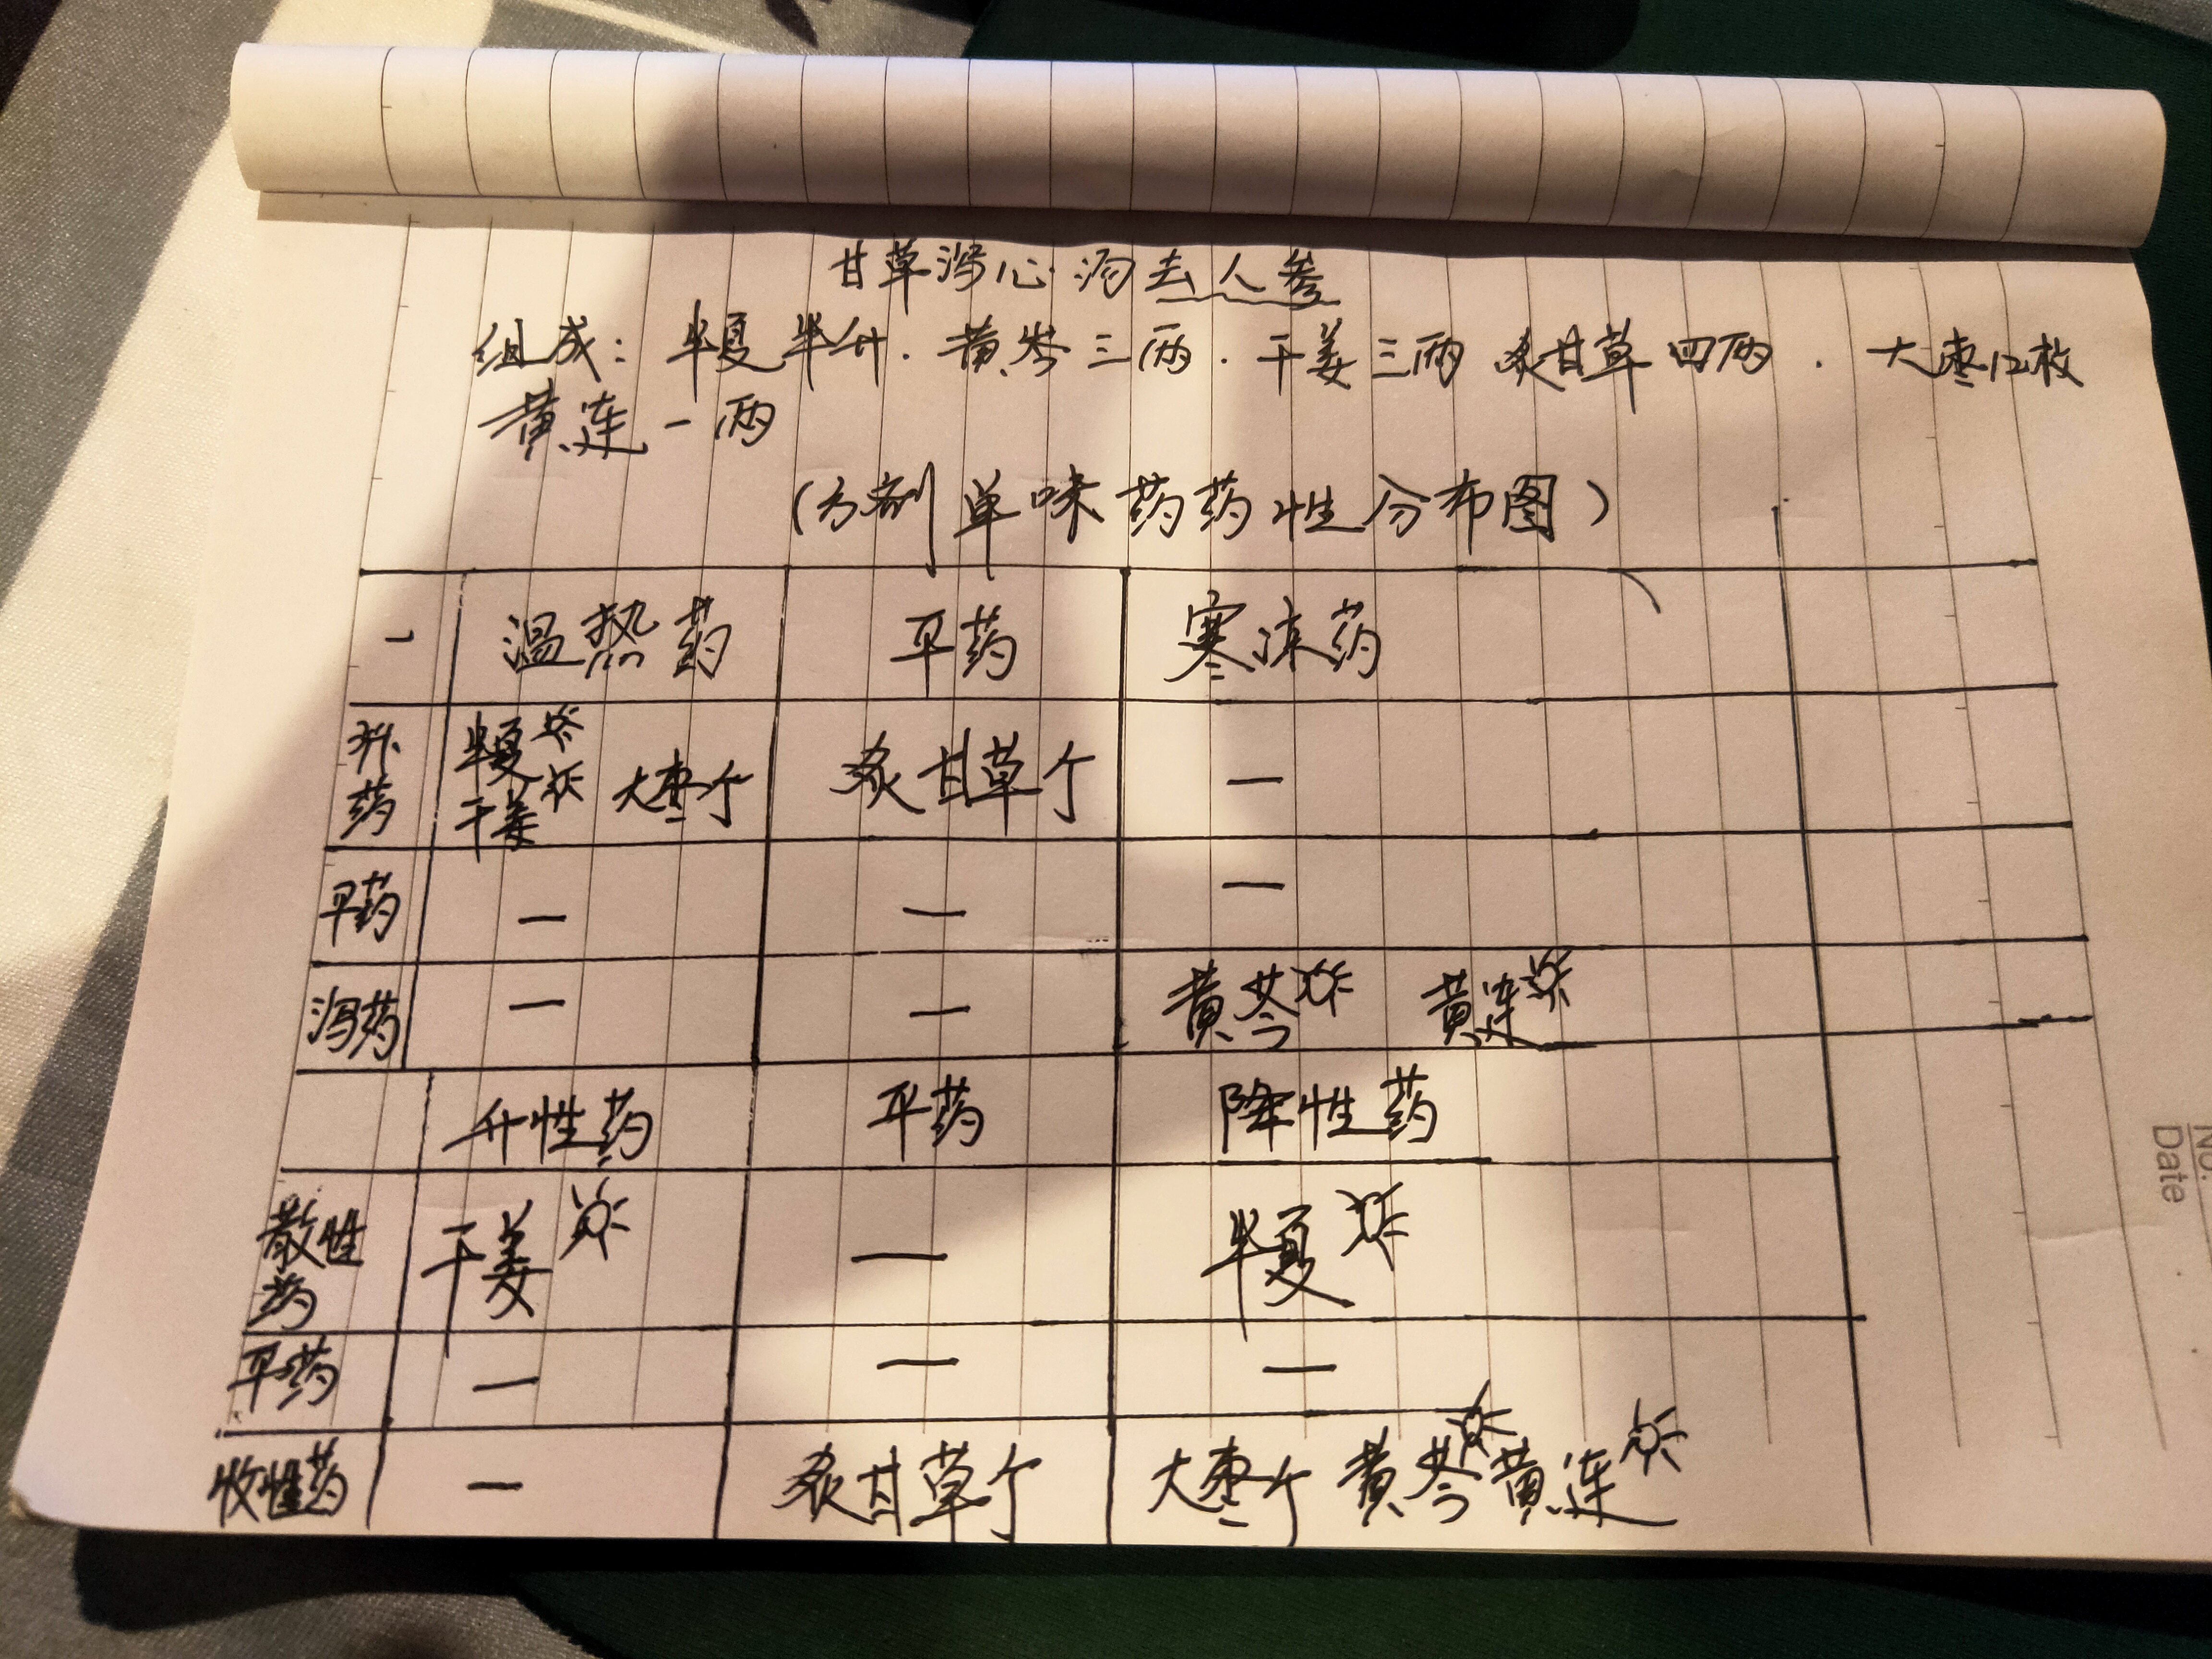 甘草泻心汤去人参
组成：半夏半升．黄芩三两．干姜三两 炙甘草四两．大枣12枚
黄连一两
（方剂单味药药性分布图）
一 温热药 平药 寒凉药
补药 半夏 干姜 大枣个 炙甘草个 —
平药 — — —
泻药 — — 黄芩 黄连
升性药 平药 降性药
散性药 干姜 — 半夏
平药 — — —
收性药 — 炙甘草个 大枣个 黄芩 黄连
No.
Date